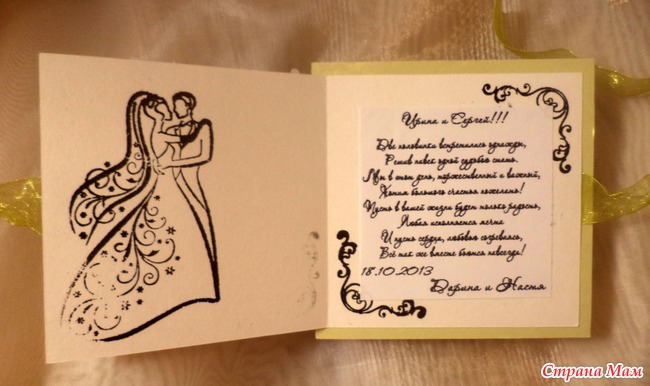 Ирина и Сергей!!!
Две половинки встретились однажды,
Решив навек одной судьбою стать.
Мы в этот день, торжественный и важный,
Хотим большого счастья пожелать!
Пусть в вашей жизни будет только радость,
Любая исполняется мечта
И пусть сердца, любовью согреваясь,
Всё так же вместе бьются навсегда!
18.10.2013
Дарина и Настя
Страна Мам